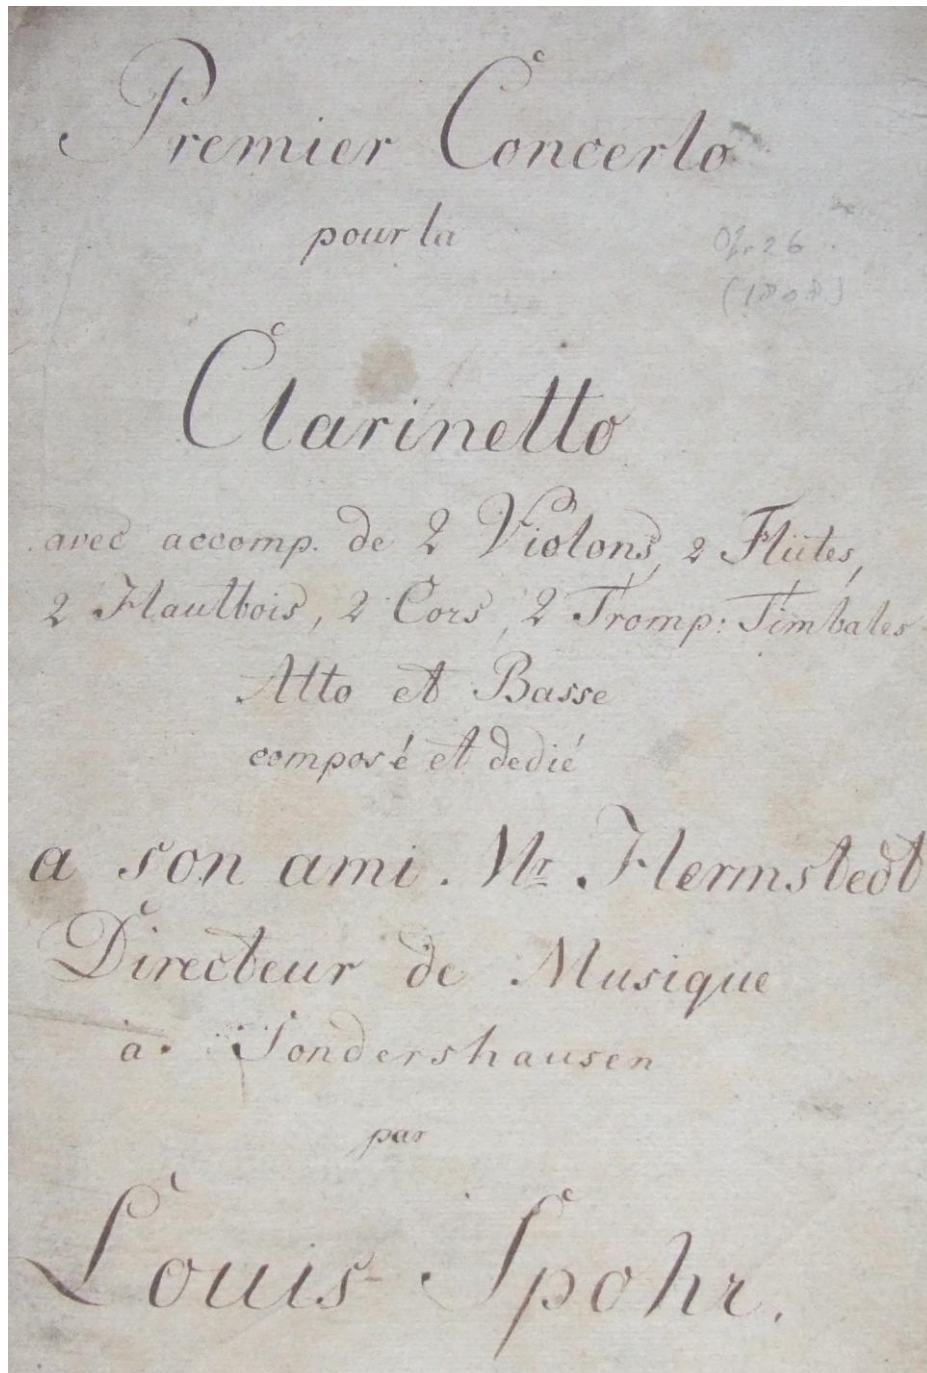 Premier Concerto
pour la
Op. 26
(1808)
Clarinetto
avec accomp. de 2 Violons, 2 Flütes,
2 Hautbois, 2 Cors, 2 Tromp: Timbales
Alto et Basse
composé et dedié
a son ami. Mr. Hermstedt
Directeur de Musique
à Sondershausen
par
Louis Spohr.